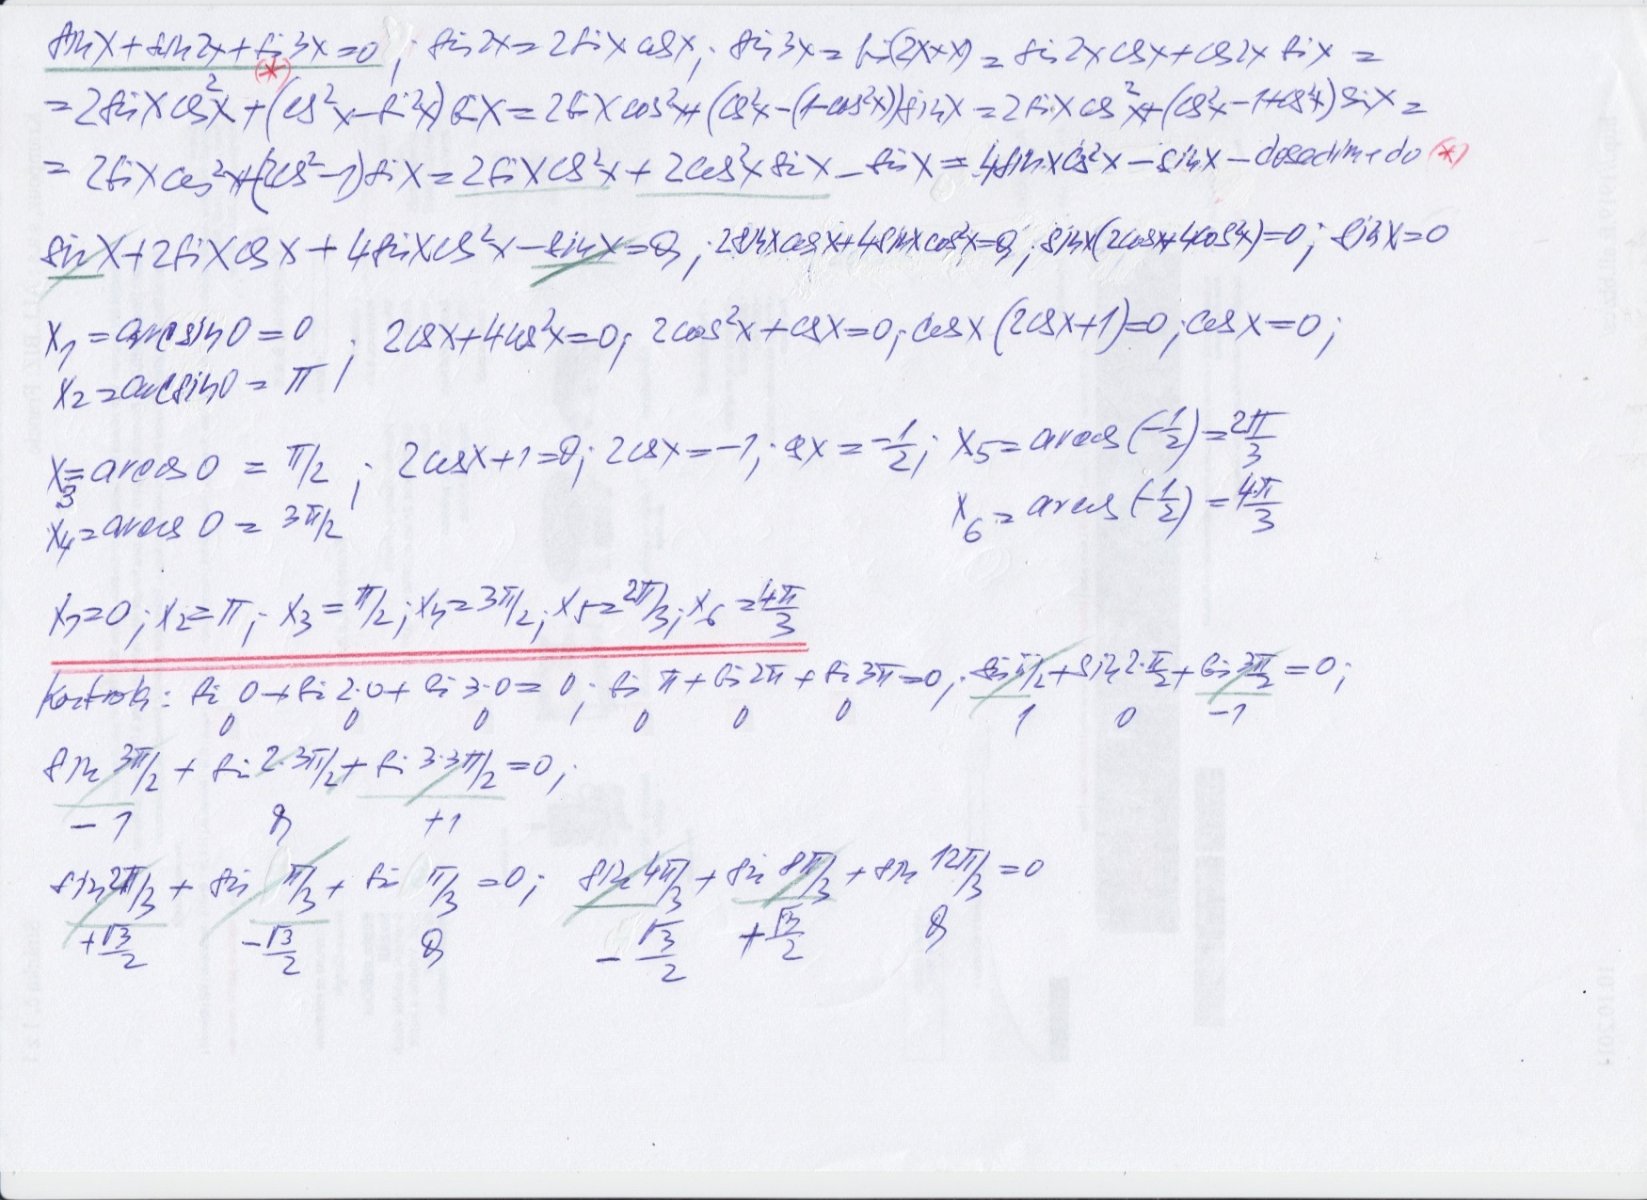 sin x + sin 2x + sin 3x = 0 ; sin 2x = 2 sin x cos x ; sin 3x = sin(2x+x) = sin 2x cos x + cos 2x sin x =
(*)
= 2 sin x cos²x + (cos²x − sin²x) sin x = 2 sin x cos²x + (cos²x − (1−cos²x)) sin x = 2 sin x cos²x + (cos²x − 1 + cos²x) sin x =
= 2 sin x cos²x + (2cos² − 1) sin x = 2 sin x cos²x + 2cos²x sin x − sin x = 4 sin x cos²x − sin x – dosadíme do (*)
sin x + 2 sin x cos x + 4 sin x cos²x − sin x = 0 ; 2 sin x cos x + 4 sin x cos²x = 0 ; sin x (2cos x + 4cos²x) = 0 ; sin x = 0
x₁ = arcsin 0 = 0 ; 2cos x + 4cos²x = 0 ; 2cos²x + cos x = 0 ; cos x (2cos x + 1) = 0 ; cos x = 0 ;
x₂ = arcsin 0 = π ;
x₃ = arccos 0 = π/2 ; 2cos x + 1 = 0 ; 2cos x = −1 ; cos x = −1/2 ; x₅ = arccos (−1/2) = 2π/3
x₄ = arccos 0 = 3π/2 x₆ = arccos (−1/2) = 4π/3
x₁ = 0 ; x₂ = π ; x₃ = π/2 ; x₄ = 3π/2 ; x₅ = 2π/3 ; x₆ = 4π/3
Kontrola : sin 0 + sin 2·0 + sin 3·0 = 0 ; sin π + sin 2π + sin 3π = 0 ; sin π/2 + sin 2·π/2 + sin 3π/2 = 0 ;
0 0 0 0 0 0 1 0 −1
sin 3π/2 + sin 2·3π/2 + sin 3·3π/2 = 0 ;
−1 0 +1
sin 2π/3 + sin π/3 + sin π/3 = 0 ; sin 4π/3 + sin 8π/3 + sin 12π/3 = 0
+√3/2 −√3/2 0 −√3/2 +√3/2 0